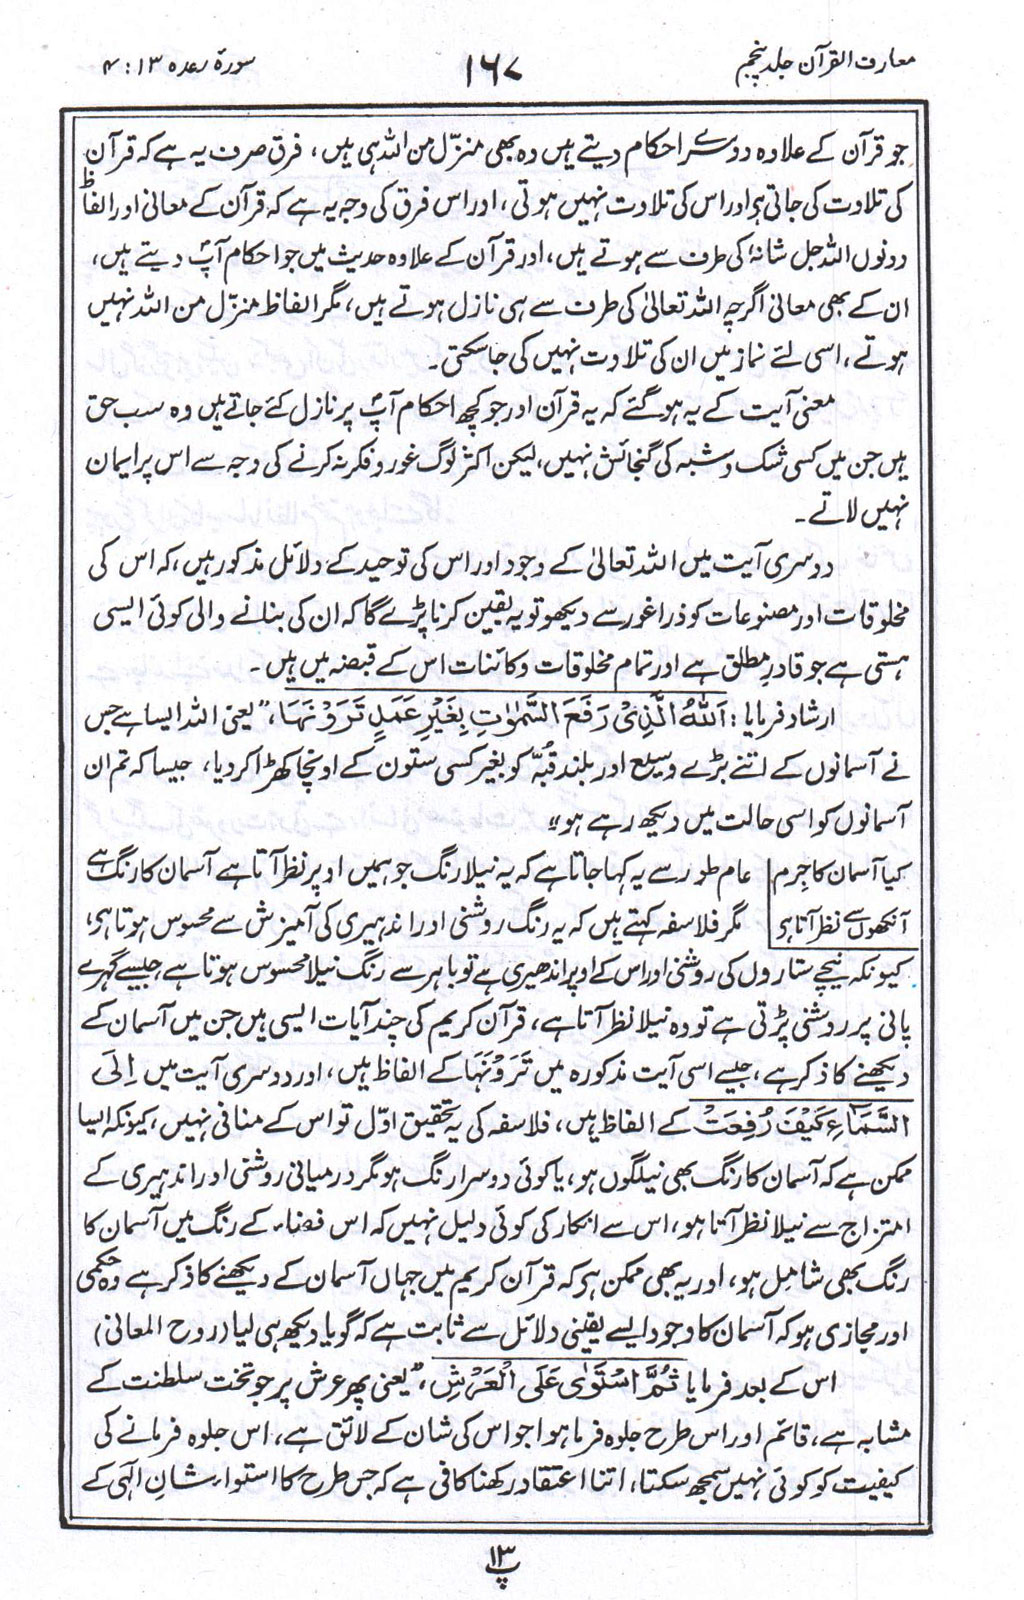 معارف القرآن جلد پنجم
۱۶۷
سورۂ رعد ۱۳ : ۴
جو قرآن کے علاوہ دوسرے احکام دیتے ہیں وہ بھی منزّل من اللہ ہی ہیں، فرق صرف یہ ہے کہ قرآن
کی تلاوت کی جاتی ہے اور اس کی تلاوت نہیں ہوتی، اور اس فرق کی وجہ یہ ہے کہ قرآن کے معانی اور الفاظ
دونوں اللہ جل شانہٗ کی طرف سے ہوتے ہیں، اور قرآن کے علاوہ حدیث میں جو احکام آپؐ دیتے ہیں،
ان کے بھی معانی اگرچہ اللہ تعالیٰ کی طرف سے ہی نازل ہوتے ہیں، مگر الفاظ منزّل من اللہ نہیں
ہوتے، اسی لئے نماز میں ان کی تلاوت نہیں کی جا سکتی۔
معنی آیت کے یہ ہوگئے کہ یہ قرآن اور جو کچھ احکام آپؐ پر نازل کئے جاتے ہیں وہ سب حق
ہیں جن میں کسی شک و شبہ کی گنجائش نہیں، لیکن اکثر لوگ غور و فکر نہ کرنے کی وجہ سے اس پر ایمان
نہیں لاتے۔
دوسری آیت میں اللہ تعالیٰ کے وجود اور اس کی توحید کے دلائل مذکور ہیں، کہ اس کی
مخلوقات اور مصنوعات کو ذرا غور سے دیکھو تو یہ یقین کرنا پڑے گا کہ ان کی بنانے والی کوئی ایسی
ہستی ہے جو قادرِ مطلق ہے اور تمام مخلوقات و کائنات اس کے قبضہ میں ہیں۔
ارشاد فرمایا: اَللّٰهُ الَّذِیْ رَفَعَ السَّمٰوٰتِ بِغَیْرِ عَمَدٍ تَرَوْنَهَا، ”یعنی اللہ ایسا ہے جس
نے آسمانوں کے اتنے بڑے وسیع اور بلند قُبّہ کو بغیر کسی ستون کے اونچا کھڑا کردیا، جیسا کہ تم ان
آسمانوں کو اسی حالت میں دیکھ رہے ہو“
کیا آسمان کا جِرم
آنکھوں سے نظر آتا ہے
عام طور سے یہ کہا جاتا ہے کہ یہ نیلا رنگ جو ہمیں اوپر نظر آتا ہے آسمان کا رنگ ہے
مگر فلاسفہ کہتے ہیں کہ یہ رنگ روشنی اور اندھیری کی آمیزش سے محسوس ہوتا ہے،
کیونکہ نیچے ستاروں کی روشنی اور اس کے اوپر اندھیری ہے تو باہر سے رنگ نیلا محسوس ہوتا ہے جیسے گہرے
پانی پر روشنی پڑتی ہے تو وہ نیلا نظر آتا ہے، قرآن کریم کی چند آیات ایسی ہیں جن میں آسمان کے
دیکھنے کا ذکر ہے، جیسے اسی آیت مذکورہ میں تَرَوْنَهَا کے الفاظ ہیں، اور دوسری آیت میں اِلَی
السَّمَآءِ کَیْفَ رُفِعَتْ کے الفاظ ہیں، فلاسفہ کی یہ تحقیق اوّل تو اس کے منافی نہیں، کیونکہ ایسا
ممکن ہے کہ آسمان کا رنگ بھی نیلگوں ہو، یا کوئی دوسرا رنگ ہو مگر درمیانی روشنی اور اندھیری کے
امتزاج سے نیلا نظر آتا ہو، اس سے انکار کی کوئی دلیل نہیں کہ اس فضاء کے رنگ میں آسمان کا
رنگ بھی شامل ہو، اور یہ بھی ممکن ہے کہ قرآن کریم میں جہاں آسمان کے دیکھنے کا ذکر ہے وہ حکمی
اور مجازی ہو کہ آسمان کا وجود ایسے یقینی دلائل سے ثابت ہے کہ گویا دیکھ ہی لیا (روح المعانی)
اس کے بعد فرمایا ثُمَّ اسْتَوٰی عَلَی الْعَرْشِ، ”یعنی پھر عرش پر جو تخت سلطنت کے
مشابہ ہے، قائم اور اس طرح جلوہ فرما ہوا جو اس کی شان کے لائق ہے، اس جلوہ فرمانے کی
کیفیت کو کوئی نہیں سمجھ سکتا، اتنا اعتقاد رکھنا کافی ہے کہ جس طرح کا استواء شانِ الٰہی کے
پ ۱۳